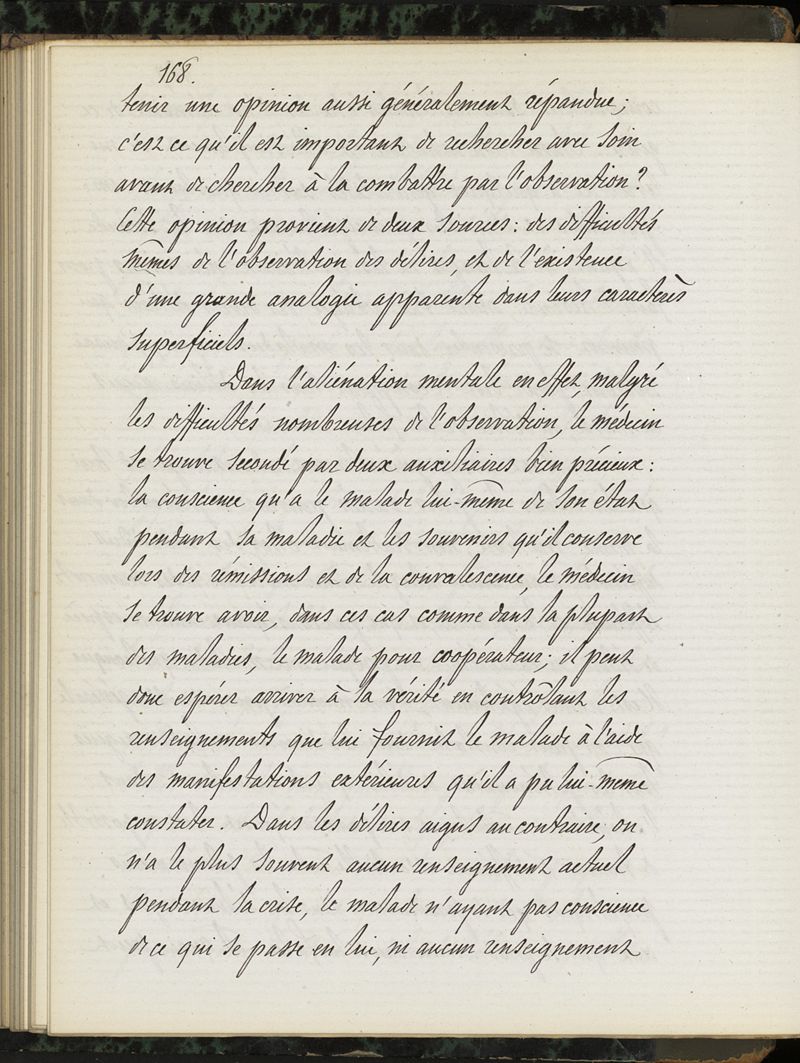 168.
tenir une opinion aussi généralement répandue;
c'est ce qu'il est important de rechercher avec soin
avant de chercher à la combattre par l'observation?
Cette opinion provient de deux sources: des difficultés
mêmes de l'observation des délires, et de l'existence
d'une grande analogie apparente dans leurs caractères
superficiels.
Dans l'aliénation mentale en effet, malgré
les difficultés nombreuses de l'observation, le médecin
se trouve secondé par deux auxiliaires bien précieux:
la conscience qu'a le malade lui-même de son état
pendant sa maladie et les souvenirs qu'il conserve
lors des rémissions et de la convalescence, le médecin
se trouve avoir, dans ces cas comme dans la plupart
des maladies, le malade pour coopérateur; il peut
donc espérer arriver à la vérité en contrôlant les
renseignements que lui fournit le malade à l'aide
des manifestations extérieures qu'il a pu lui-même
constater. Dans les délires aigus au contraire, on
n'a le plus souvent aucun renseignement actuel
pendant la crise, le malade n'ayant pas conscience
de ce qui se passe en lui, ni aucun renseignement